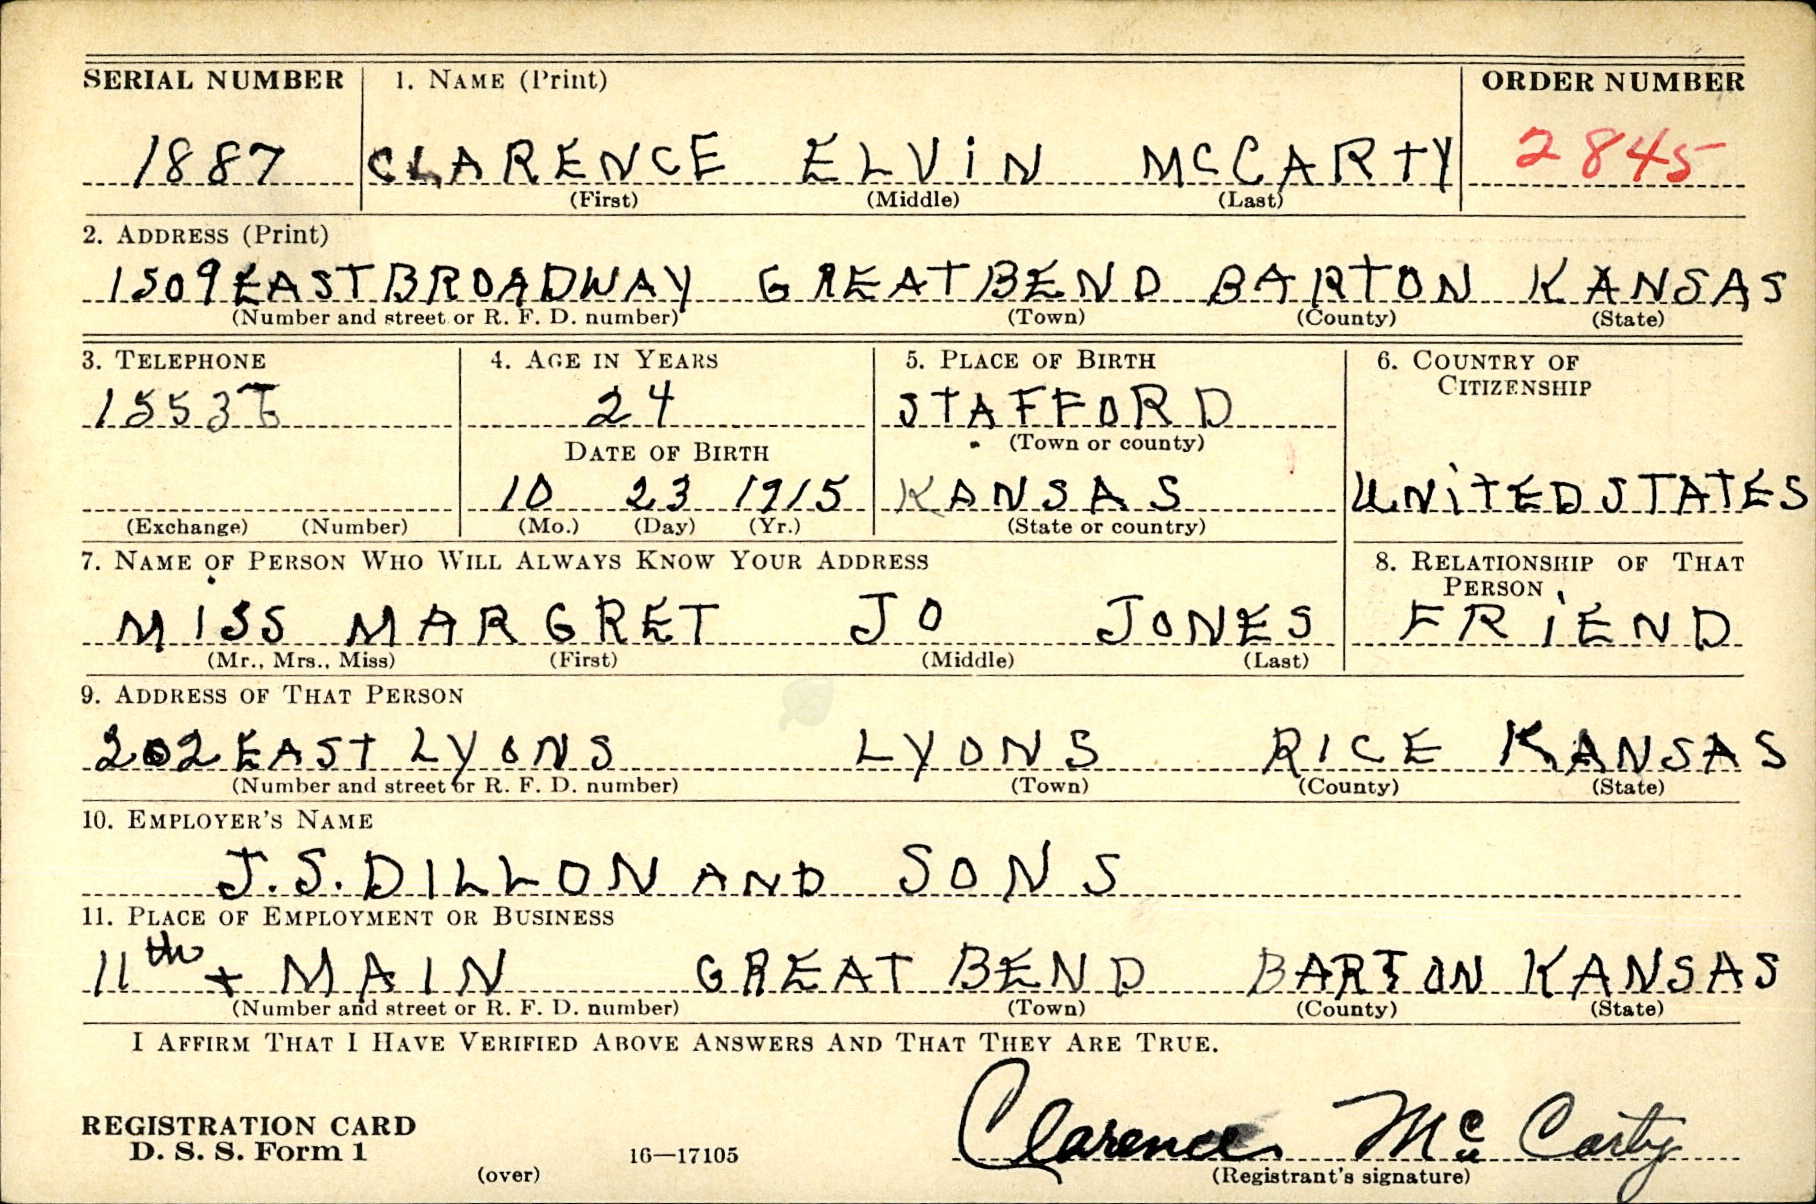 SERIAL NUMBER 1. NAME (Print) ORDER NUMBER
1887 CLARENCE ELViN McCARTY 2845
(First) (Middle) (Last)
2. ADDRESS (Print)
1509 EAST BROADWAY GREAT BEND BARTON KANSAS
(Number and street or R. F. D. number) (Town) (County) (State)
3. TELEPHONE 4. AGE IN YEARS 5. PLACE OF BIRTH 6. COUNTRY OF
CITIZENSHIP
1553 24 STAFFORD
(Town or county)
DATE OF BIRTH
10 23 1915 KANSAS UNiTED STATES
(Exchange) (Number) (Mo.) (Day) (Yr.) (State or country)
7. NAME OF PERSON WHO WILL ALWAYS KNOW YOUR ADDRESS 8. RELATIONSHIP OF THAT
PERSON
MISS MARGRET JO JONES FRiEND
(Mr., Mrs., Miss) (First) (Middle) (Last)
9. ADDRESS OF THAT PERSON
202 EAST LYONS LYONS RICE KANSAS
(Number and street or R. F. D. number) (Town) (County) (State)
10. EMPLOYER'S NAME
J.S. DILLON AND SONS
11. PLACE OF EMPLOYMENT OR BUSINESS
11th + MAIN GREAT BEND BARTON KANSAS
(Number and street or R. F. D. number) (Town) (County) (State)
I AFFIRM THAT I HAVE VERIFIED ABOVE ANSWERS AND THAT THEY ARE TRUE.
REGISTRATION CARD
D. S. S. Form 1
Clarence Mc Carty
(over) 16—17105 (Registrant's signature)